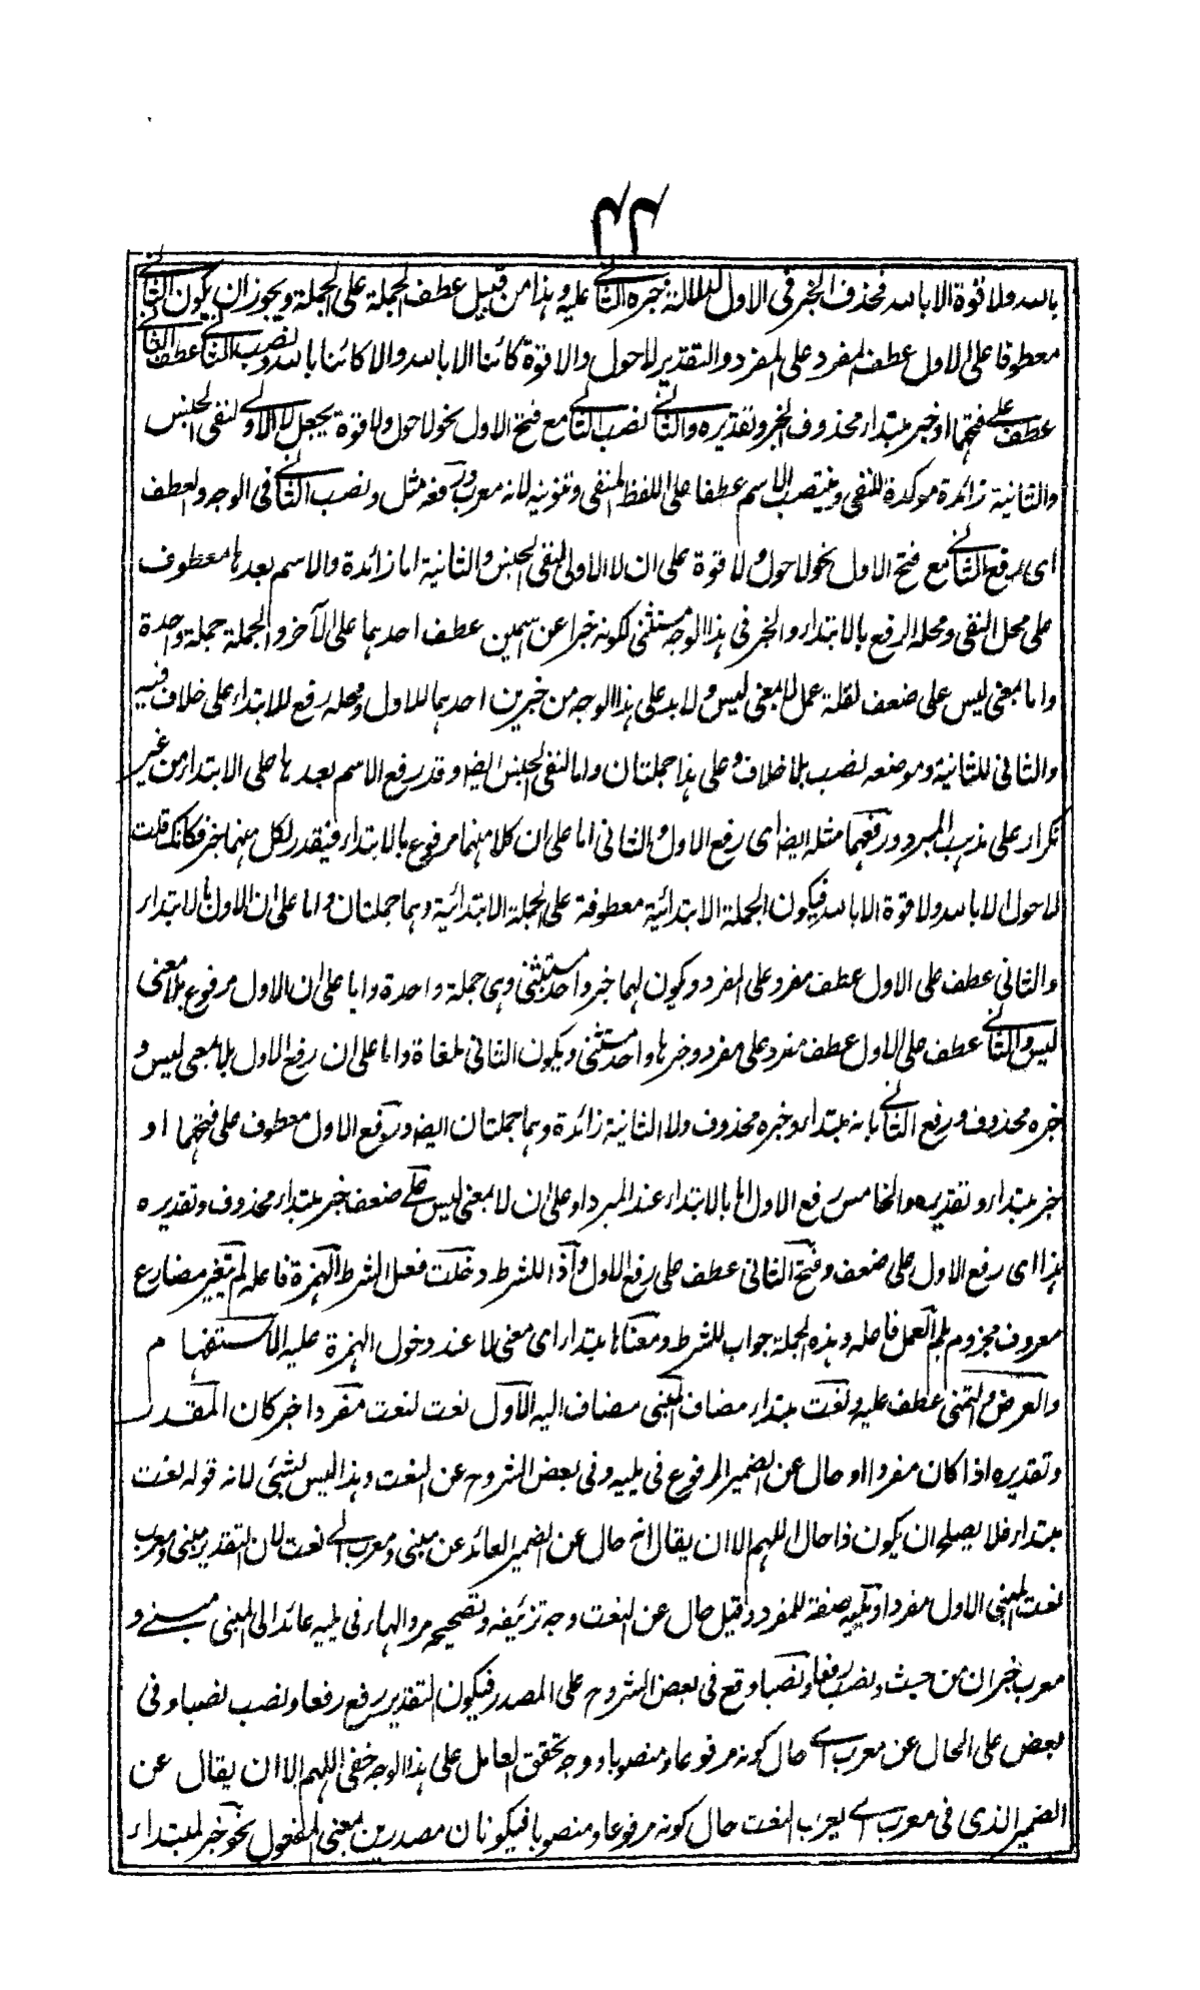 بالله ولا قوة الا بالله فحذف الخبر فى الاول لدلالة خبره الثانے عليه وهذا من قبيل عطف الجملة على الجملة ويجوز ان يكون الثانے
معطوفا على الاول عطف المفرد على المفرد والتقدير لا حول والا قوة كائنا الا بالله والا كائنا بالله ونصب الثانے عطف الثانے
عطف علے فتحهما او خبر مبتداء محذوف الخبر وتقديره والثانے نصب الثانے مع فتح الاول نحو لا حول ولا قوة يجعل لا الاولے لنفى الجنس
والثانية زائدة موكدة للنفى وينتصب الاسم عطفا على اللفظ المنفى وتنوينه لانه معرب ورفعه مثل ونصب الثانے فى الوجه والعطف
اى رفع الثانے مع فتح الاول نحو لا حول ولا قوة على ان لا الاولى لنفى الجنس والثانية اما زائدة والاسم بعدها معطوف
على محل النفى ومحله الرفع بالابتداء والخبر فى هذا الوجه مستثنى لكونه خبرا عن اسمين عطف احدهما على الآخر والجملة جملة واحدة
واما بمعنى ليس على ضعف لقلة عمل لا بمعنى ليس ولا بد على هذا الوجه من خبرين احدهما للاول ومحله رفع للابتداء على خلاف فيه
والثانى للثانية وموضعه نصب بلا خلاف وعلى هذا جملتان واما لنفى الجنس ايضا وقد رفع الاسم بعدها على الابتداء من غير
تكرار على مذهب المبرد ورفعهما مثله ايضا اى رفع الاول والثانى اما على ان كلا منهما مرفوع بالابتداء فيقدر لكل منهما خبر فكانك قلت
لا حول الا بالله ولا قوة الا بالله فيكون الجملة الابتدائية معطوفة على الجملة الابتدائية وهما جملتان واما على ان الاول بالابتداء
والثانى عطف على الاول عطف مفرد على المفرد ويكون لهما خبر واحد مستثنى وهى جملة واحدة واما على ان الاول مرفوع بلا معنى
ليس والثانے عطف على الاول عطف مفرد على مفرد وخبرها واحد مستثنى ويكون الثانى ملغاة واما على ان رفع الاول بلا بمعنى ليس و
خبره محذوف ورفع الثانے بانه مبتداء وخبره محذوف ولا الثانية زائدة وهما جملتان ايضا ورفع الاول معطوف على فتحهما او
خبر مبتداء وتقديره والخامس رفع الاول اما بالابتداء عند المبرد او على ان لا بمعنى ليس علے ضعف خبر مبتداء محذوف وتقديره
هذا اى رفع الاول على ضعف وفتح الثانى عطف على رفع الاول واذا للشرط دخلت فعل الشرط الهمزة فاعله لم تغير مضارع
معروف مجزوم بلم العمل فاعله وهذه الجملة جواب للشرط ومعناها مبتداء اى معنى لا عند دخول الهمزة عليه الاستفهام
والعرض والتمنى عطف عليه ونعت مبتداء مضاف المبنى مضاف اليه الاول نعت لنعت مفردا خبر كان المقدر
وتقديره اذا كان مفردا او حال عن الضمير المرفوع فى يليه وفى بعض الشروح عن النعت وهذا ليس بشئ لانه قوله نعت
مبتداء فلا يصلح ان يكون ذا حال اللهم الا ان يقال انه حال عن الضمير العائد عن مبنى ومعرب الے نعت لان التقدير مبنى ومعرب
نعت المبنى الاول مفردا ويليه صفة للمفرد وقيل حال عن النعت وجه تزئيفه وتصحيحه مر والهاء فى يليه عائد الى المبنى مبنے و
معرب خبران من حيث ونصب رفعا ونصبا وقع فى بعض الشروح على المصدر فيكون التقدير رفع رفعا ونصب نصبا وفى
بعض على الحال عن معرب اے حال كونه مرفوعا ومنصوبا ووجه تحقق العامل على هذا الوجه خفى اللهم الا ان يقال عن
الضمير الذى فى معرب اے يعرب النعت حال كونه مرفوعا ومنصوبا فيكونان مصدرين بمعنى المفعول نحو خبر المبتداء